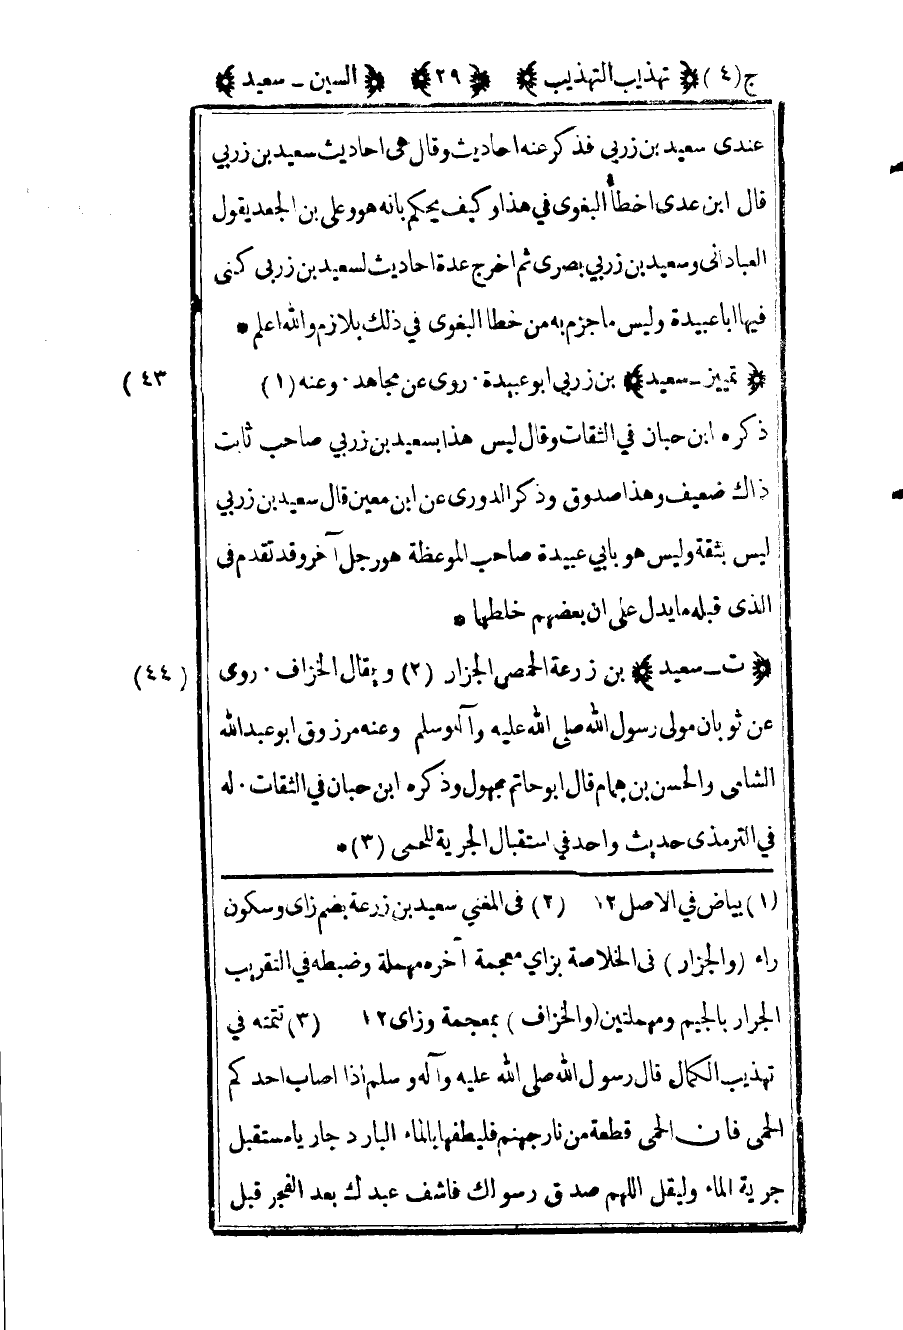 ج (٤) ﴿ تهذيب التهذيب ﴾ ﴿ ٢٩ ﴾ ﴿ السين ـ سعيد ﴾
عندى سعيد بن زربي فذكر عنه احاديث وقال هى احاديث سعيد بن زربي
قال ابن عدى اخطأ البغوى في هذا وكيف يحكم بانه هو وعلى بن الجعد يقول
العبادانى وسعيد بن زربي بصرى ثم اخرج عدة احاديث لسعيد بن زربى كنى
فيها ابا عبيدة وليس ما جزم به من خطا البغوى في ذلك بلازم والله اعلم *
﴿ تمييز ـ سعيد ﴾ بن زربي ابو عبيدة · روى عن مجاهد · وعنه (١) (٤٣
ذكره ابن حبان في الثقات وقال ليس هذا بسعيد بن زربي صاحب ثابت
ذاك ضعيف وهذا صدوق وذكر الدورى عن ابن معين قال سعيد بن زربي
ليس بثقة وليس هو بابي عبيدة صاحب الموعظة هو رجل آخر وقد تقدم فى
الذى قبله ما يدل على ان بعضهم خلطها *
﴿ ت ـ سعيد ﴾ بن زرعة الحمصي الجزار (٢) ويقال الخزاف · روى (٤٤)
عن ثوبان مولى رسول الله صلى الله عليه وآله وسلم وعنه مرزوق ابو عبد الله
الشامى والحسن بن همام قال ابو حاتم مجهول وذكره ابن حبان في الثقات · له
في الترمذى حديث واحد في استقبال الجرية للحمى (٣) *
(١) بياض في الاصل ١٢ (٢) فى المغني سعيد بن زرعة بضم زاى وسكون
راء (والجزار) فى الخلاصة بزاي معجمة آخره مهملة وضبطه في التقريب
الجرار بالجيم ومهملتين (والخزاف) بمعجمة وزاى ١٢ (٣) تتمته في
تهذيب الكمال قال رسول الله صلى الله عليه وآله وسلم اذا اصاب احدكم
الحمى فان الحمى قطعة من نار جهنم فليطفها بالماء البارد جاريا مستقبل
جرية الماء وليقل اللهم صدق رسولك فاشف عبدك بعد الفجر قبل